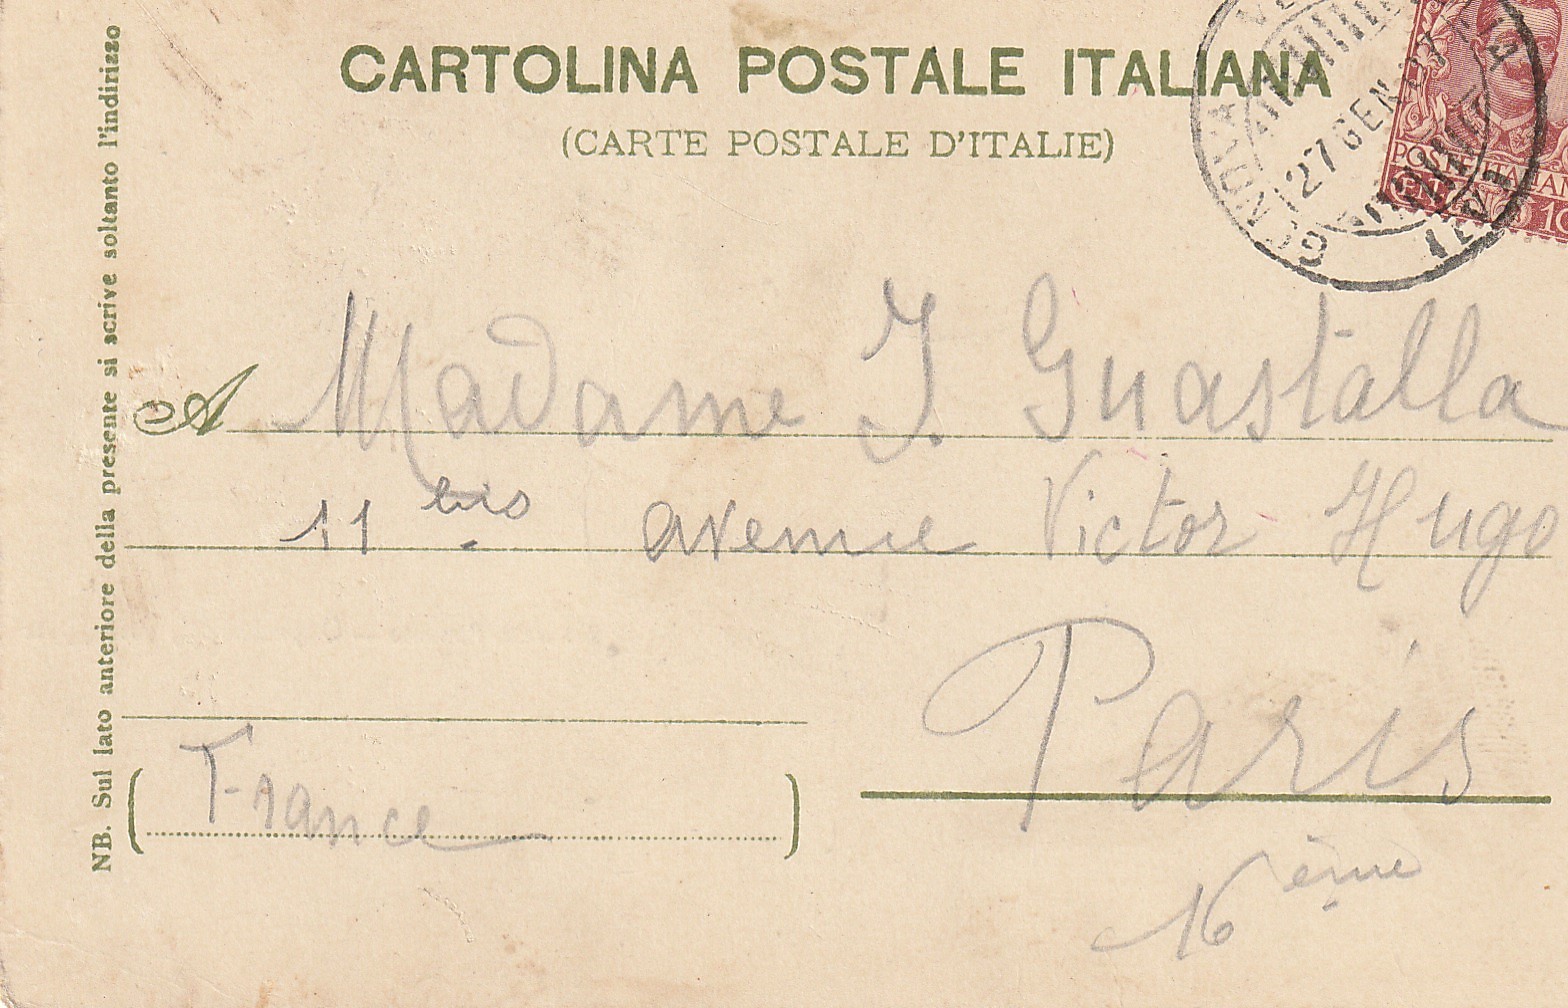 CARTOLINA POSTALE ITALIANA
(CARTE POSTALE D'ITALIE)
GENOVA
27 GEN
POSTE ITALIANE
10
NB. Sul lato anteriore della presente si scrive soltanto l'indirizzo
A Madame J. Guastalla
11 bis avenue Victor Hugo
Paris
16 ème
(France)